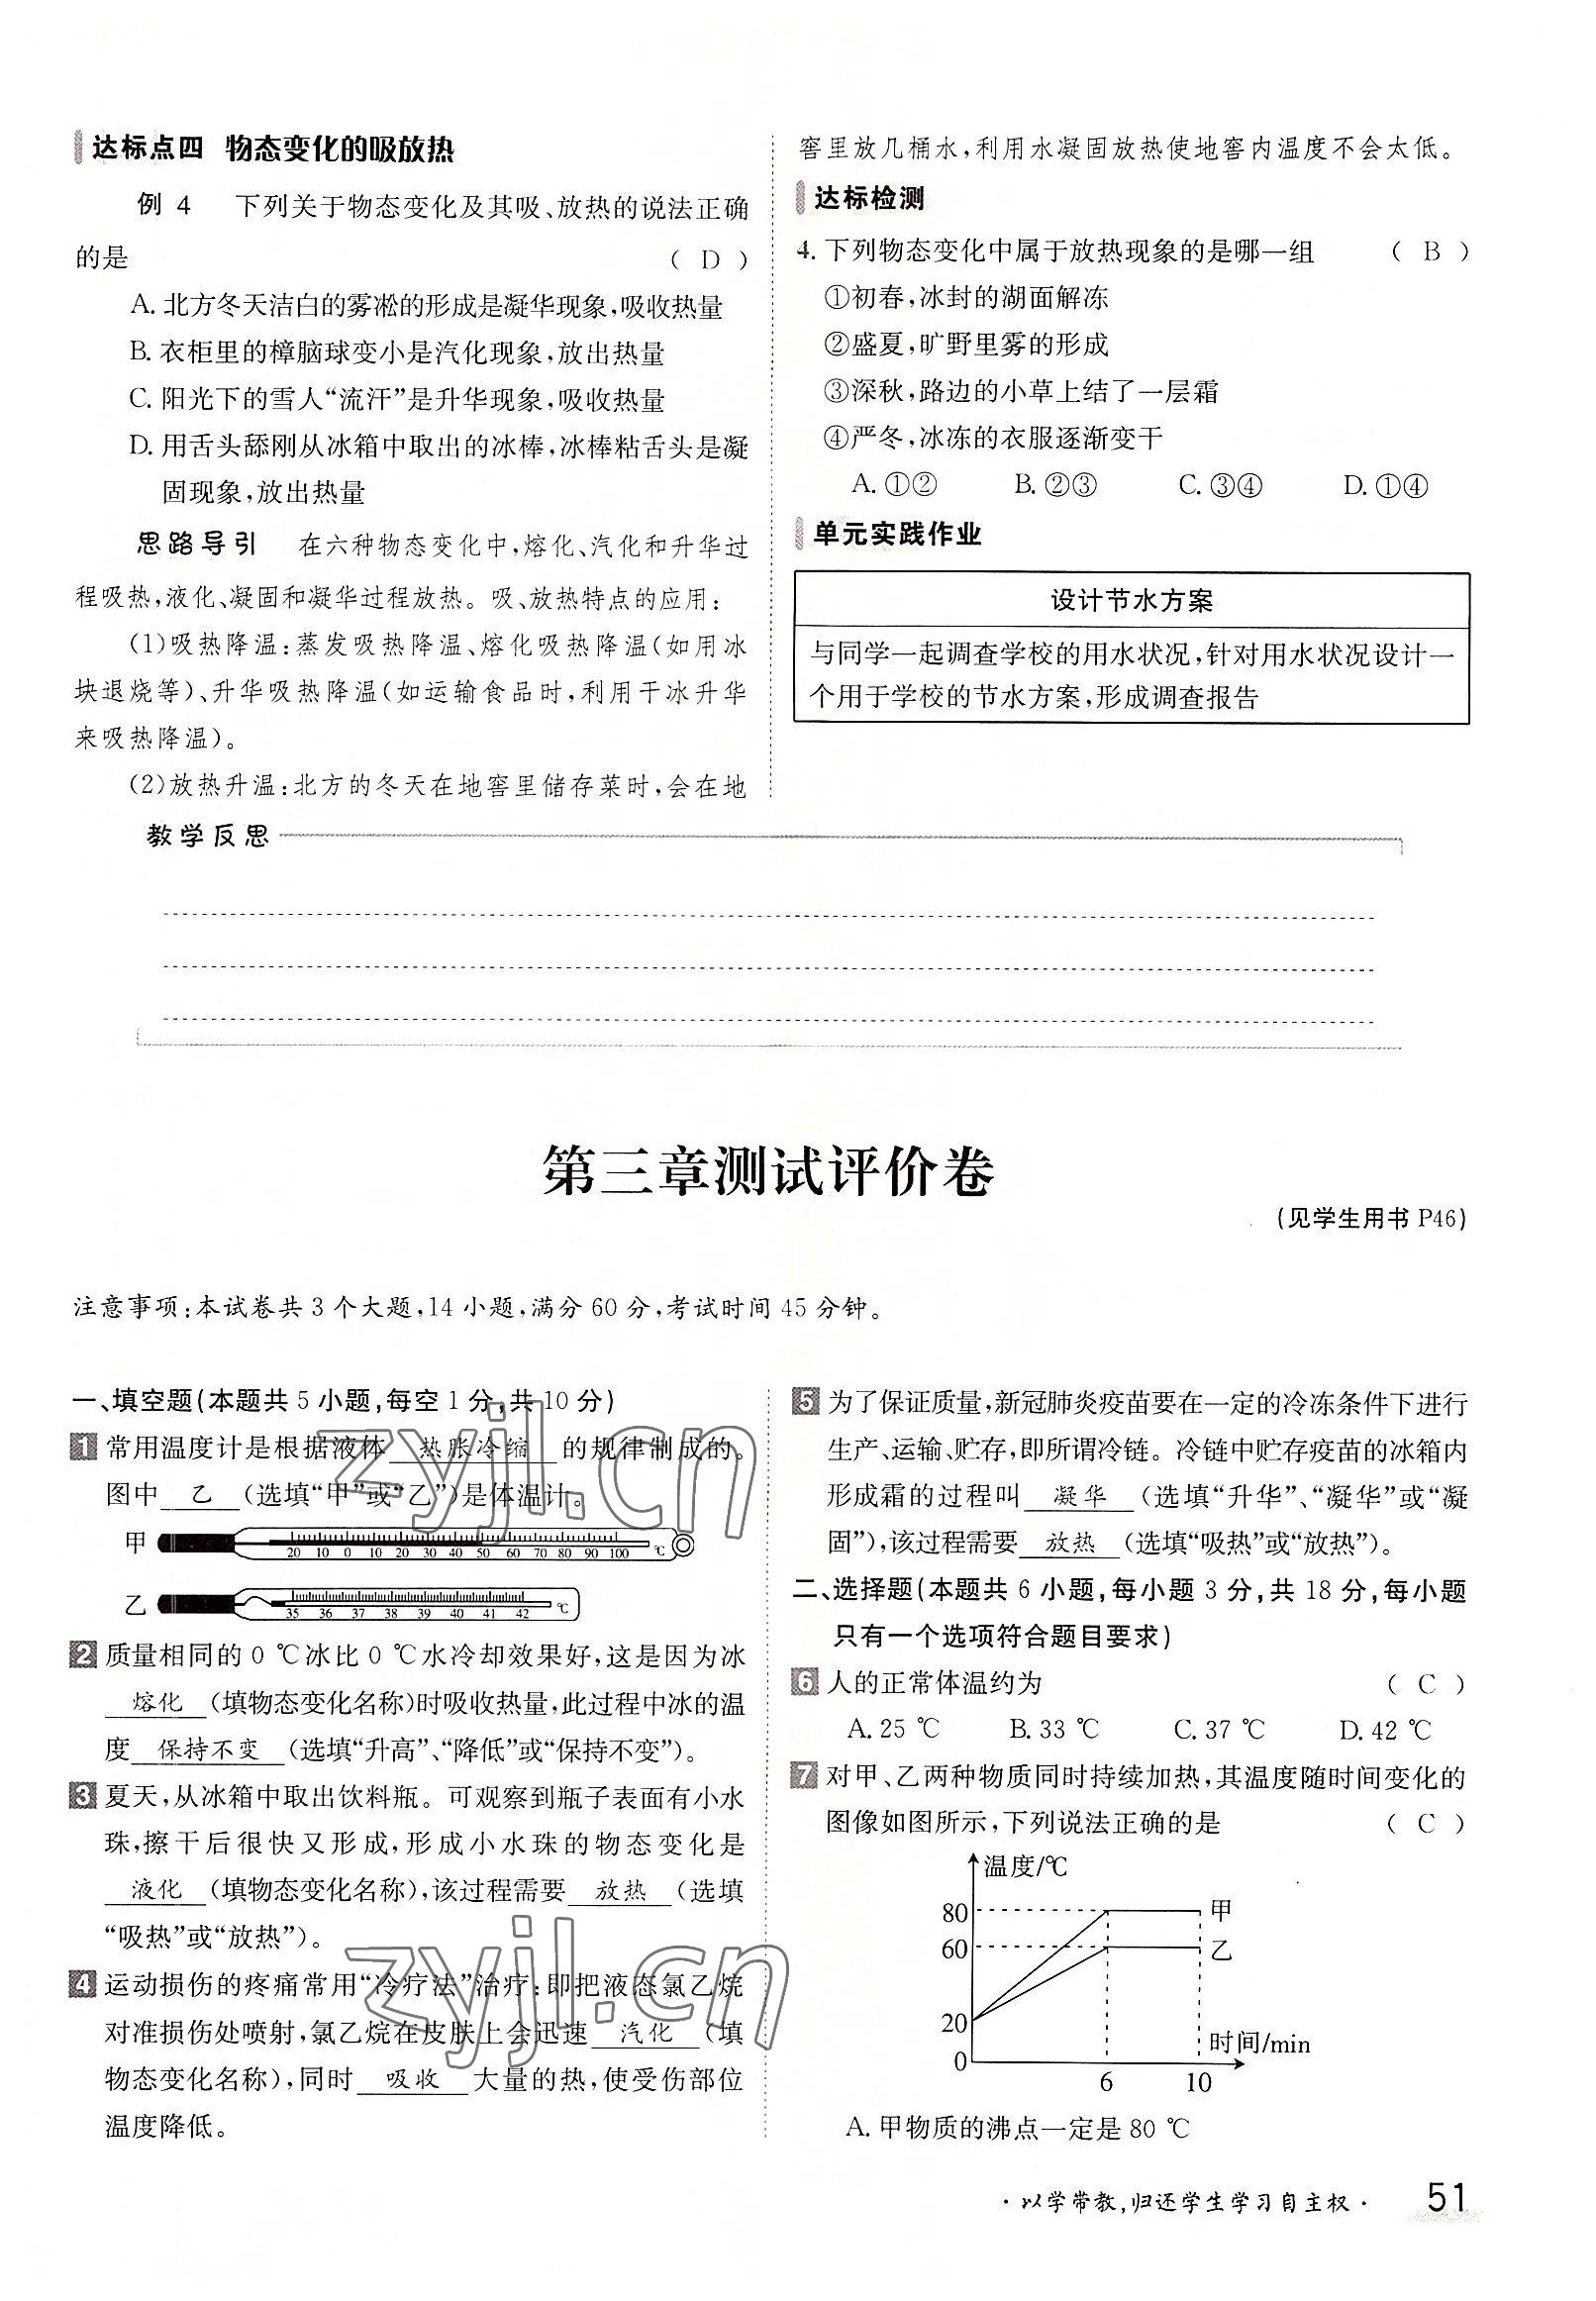 达标点四 物态变化的吸放热
例 4 下列关于物态变化及其吸、放热的说法正确
的是 ( D )
A. 北方冬天洁白的雾凇的形成是凝华现象,吸收热量
B. 衣柜里的樟脑球变小是汽化现象,放出热量
C. 阳光下的雪人“流汗”是升华现象,吸收热量
D. 用舌头舔刚从冰箱中取出的冰棒,冰棒粘舌头是凝
固现象,放出热量
思路导引 在六种物态变化中,熔化、汽化和升华过
程吸热,液化、凝固和凝华过程放热。吸、放热特点的应用:
(1)吸热降温:蒸发吸热降温、熔化吸热降温(如用冰
块退烧等)、升华吸热降温(如运输食品时,利用干冰升华
来吸热降温)。
(2)放热升温:北方的冬天在地窖里储存菜时,会在地
窖里放几桶水,利用水凝固放热使地窖内温度不会太低。
达标检测
4. 下列物态变化中属于放热现象的是哪一组 ( B )
①初春,冰封的湖面解冻
②盛夏,旷野里雾的形成
③深秋,路边的小草上结了一层霜
④严冬,冰冻的衣服逐渐变干
A. ①② B. ②③ C. ③④ D. ①④
单元实践作业
设计节水方案
与同学一起调查学校的用水状况,针对用水状况设计一
个用于学校的节水方案,形成调查报告
教学反思
第三章测试评价卷
(见学生用书 P46)
注意事项:本试卷共 3 个大题,14 小题,满分 60 分,考试时间 45 分钟。
一、填空题(本题共 5 小题,每空 1 分,共 10 分)
1 常用温度计是根据液体 热胀冷缩 的规律制成的。
图中 乙 (选填“甲”或“乙”)是体温计。
甲 20 10 0 10 20 30 40 50 60 70 80 90 100 ℃
乙 35 36 37 38 39 40 41 42 ℃
2 质量相同的 0 ℃冰比 0 ℃水冷却效果好,这是因为冰
熔化 (填物态变化名称)时吸收热量,此过程中冰的温
度 保持不变 (选填“升高”、“降低”或“保持不变”)。
3 夏天,从冰箱中取出饮料瓶。可观察到瓶子表面有小水
珠,擦干后很快又形成,形成小水珠的物态变化是
液化 (填物态变化名称),该过程需要 放热 (选填
“吸热”或“放热”)。
4 运动损伤的疼痛常用“冷疗法”治疗:即把液态氯乙烷
对准损伤处喷射,氯乙烷在皮肤上会迅速 汽化 (填
物态变化名称),同时 吸收 大量的热,使受伤部位
温度降低。
5 为了保证质量,新冠肺炎疫苗要在一定的冷冻条件下进行
生产、运输、贮存,即所谓冷链。冷链中贮存疫苗的冰箱内
形成霜的过程叫 凝华 (选填“升华”、“凝华”或“凝
固”),该过程需要 放热 (选填“吸热”或“放热”)。
二、选择题(本题共 6 小题,每小题 3 分,共 18 分,每小题
只有一个选项符合题目要求)
6 人的正常体温约为 ( C )
A. 25 ℃ B. 33 ℃ C. 37 ℃ D. 42 ℃
7 对甲、乙两种物质同时持续加热,其温度随时间变化的
图像如图所示,下列说法正确的是 ( C )
温度/℃
80 甲
60 乙
20
时间/min
0
6 10
A. 甲物质的沸点一定是 80 ℃
· 以学带教,归还学生学习自主权 · 51
zyjl.cn
zyjl.cn